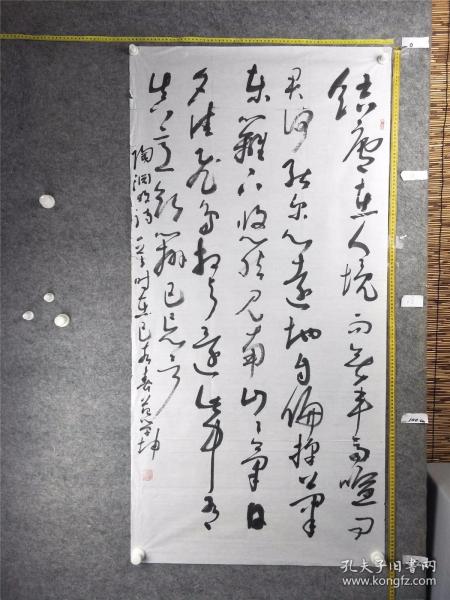 结庐在人境而无车马喧问
君何能尔心远地自偏採菊
东篱下悠然见南山山气日
夕佳飞鸟相与还此中有
真意欲辨已忘言
陶渊明诗一首时在己亥春范学坤
孔夫子旧书网
www.kongfz.com